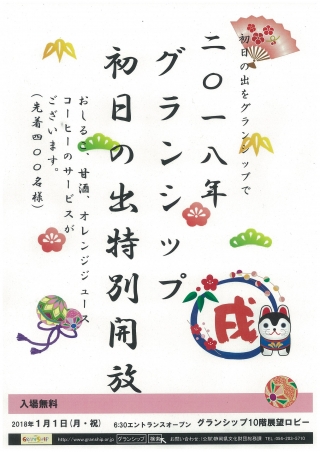 初日の出をグランシップで
二〇一八年
グランシップ
初日の出特別開放
おしるこ、甘酒、オレンジジュース
コーヒーのサービスが
ございます。
(先着四〇〇名様)
戌
入場無料
2018年1月1日(月・祝) 6:30エントランスオープン グランシップ10階展望ロビー
http://www.granship.or.jp グランシップ 検索 お問い合わせ/(公財)静岡県文化財団総務課